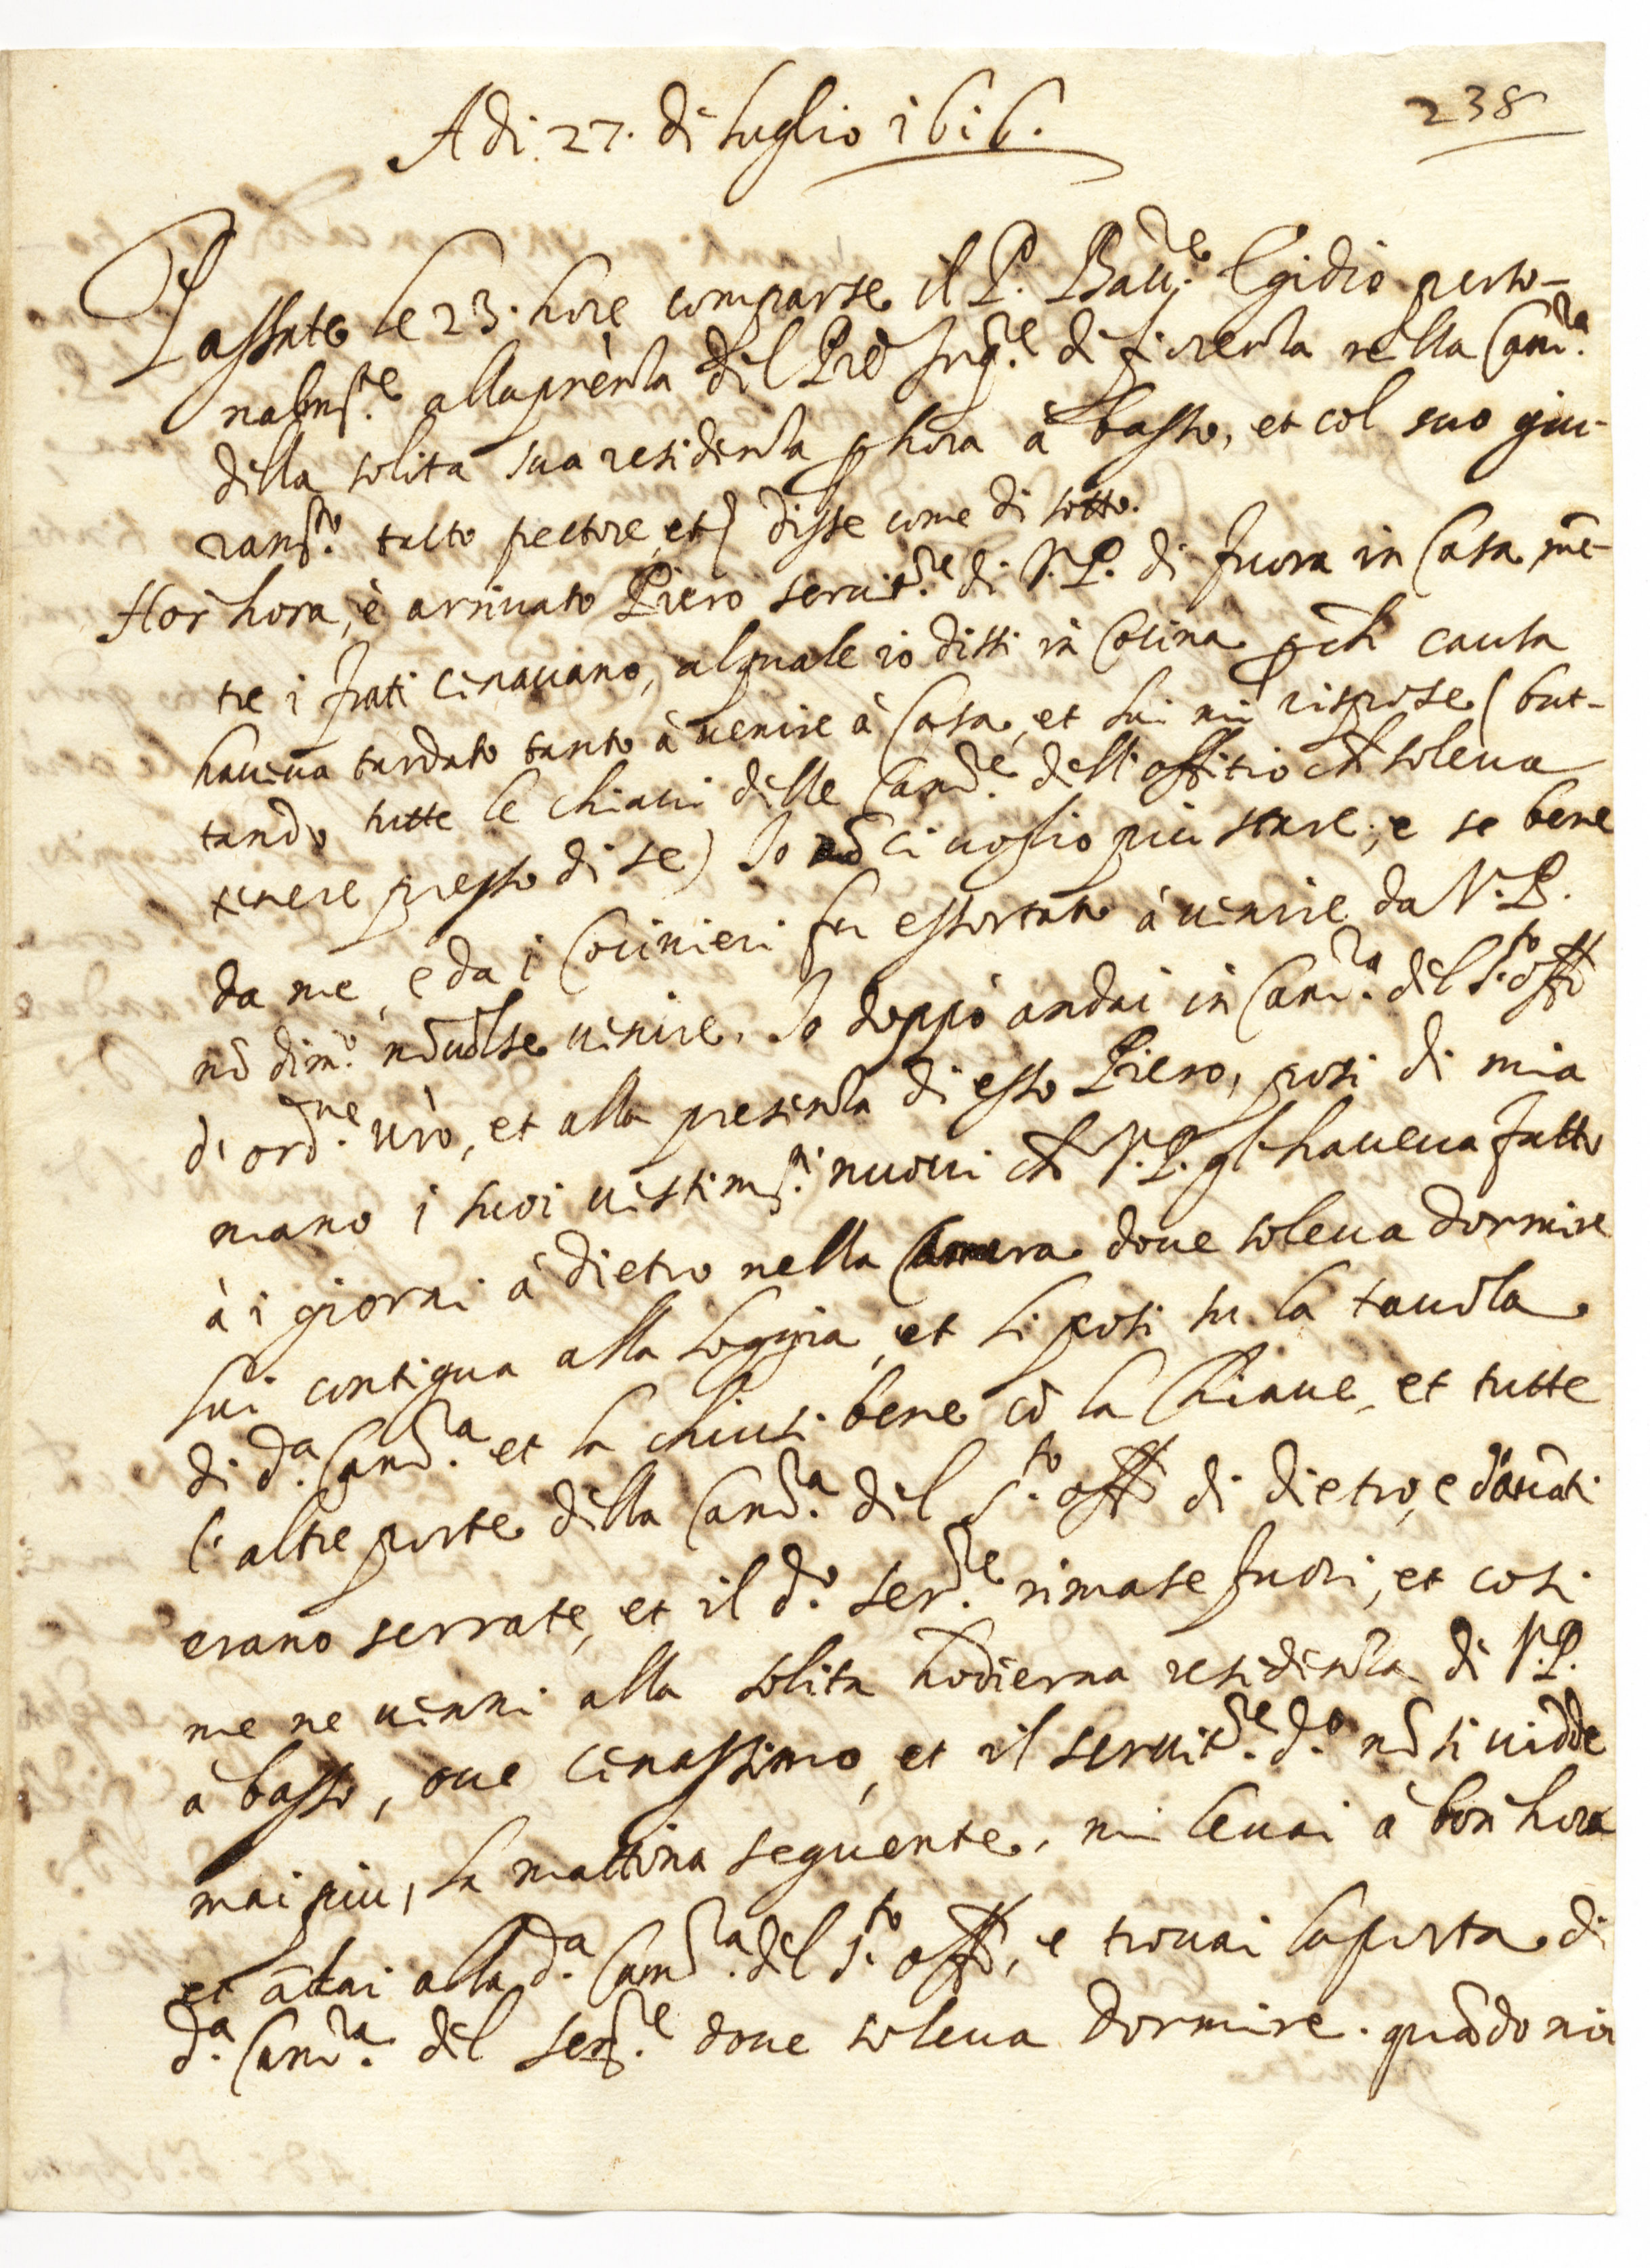 238
Adi. 27. di luglio 1616.
Passate le 23. hore comparse il P. Bacc.re Egidio perso-
nalm.te alla pñza del Prẽ Inq.re di fiorenza nella Cam.ra
della solita sua residenza p hora à basso, et col suo giu-
ram.to tacto pectore, et disse come di sotto.
Hor hora, è arriuato Piero seruit.re di V.P. di fuora in Casa mẽ-
tre i frati cenauano, al quale io dissi in Cocina p ch̃ causa
haueua tardato tanto à uenire à Casa, et lui mi rispose (but-
tando tutte le chiaui delle Cam.re dell'offitio ch̃ soleua
tenere presso di se) Io nõ ci uoglio piu stare; e se bene
da me, e da i Cocinieri fu essortato à uenire da V.P.
nõ dim.o nõ uolse uenire. Io doppo andai in Cam.ra del S.to off.o
d'ord.ne urõ, et alla presenza di esso Piero, posi di mia
mano i suoi uestim.ti nuoui ch̃ V.P. gl'haueua fatto
à i giorni à dietro nella Camera doue soleua dormire
lui contigua alla loggia, et li posi su la tauola
di d.a Cam.ra et la chiusi bene cõ la Chiaue, et tutte
l'altre porte della Cam.ra del S.to off.o di dietro, e d'auãti
erano serrate, et il d.o ser.re rimase fuori, et cosi
me ne uenni alla solita hodierna residenza di V.P.
à basso, oue cenassimo, et il seruit.re d.o nõ si uidde
mai piu, la mattina seguente, mi leuai à bon hora
et ãdai alla d.a Cam.ra del S.to off.o, e trouai la porta di
d.a Cam.ra del ser.re doue soleua dormire. quãdo nõ